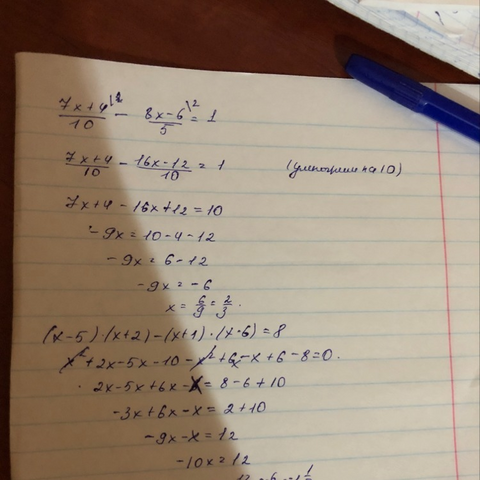 7x+4/10 \2 - 8x-6/5 \2 = 1
7x+4/10 - 16x-12/10 = 1 (умножим на 10)
7x+4 - 16x+12 = 10
-9x = 10-4-12
-9x = 6-12
-9x = -6
x = 6/9 = 2/3.
(x-5)·(x+2)-(x+1)·(x-6)=8
x²+2x-5x-10-x²+6x-x+6-8=0.
2x-5x+6x-x=8-6+10
-3x+6x-x=2+10
-9x-x=12
-10x=12